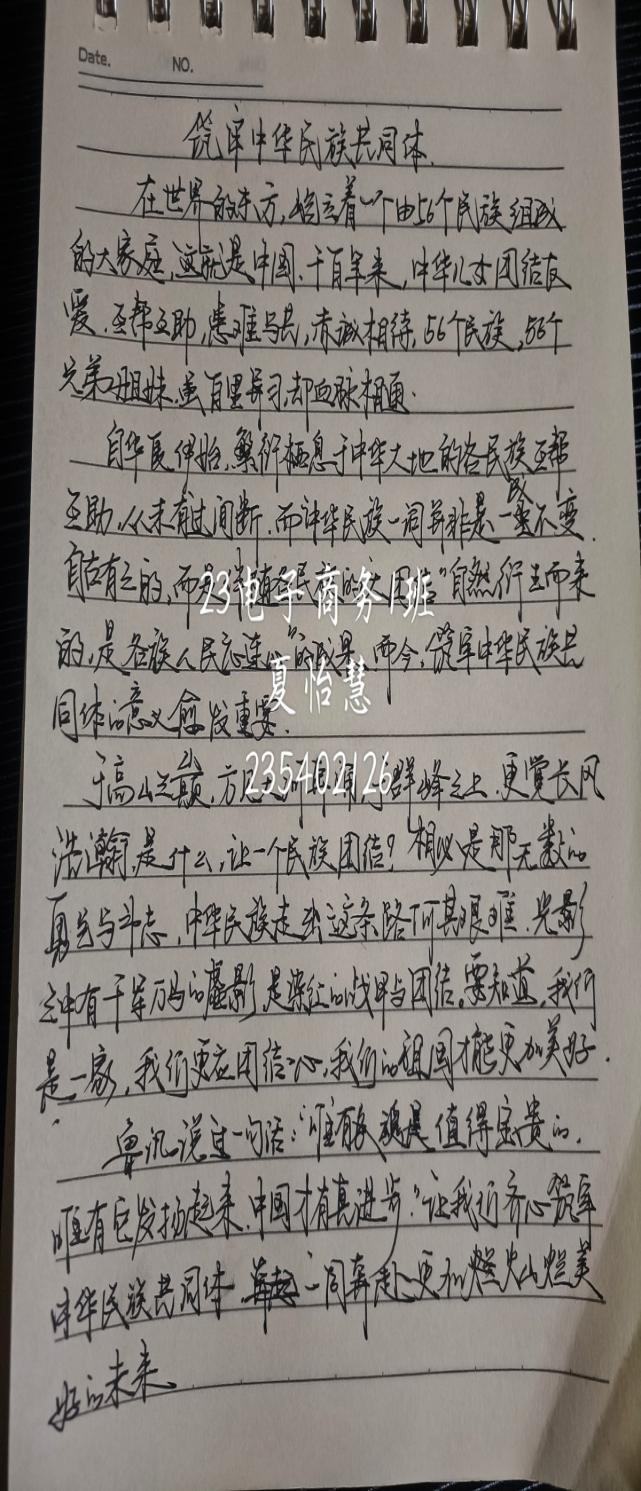 Date.
NO.
筑牢中华民族共同体
在世界的东方,屹立着一个由56个民族组成
的大家庭,这就是中国.千百年来,中华儿女团结友
爱.互帮互助,患难与共,赤诚相待,56个民族,56个
兄弟姐妹.虽百里异习,却血脉相通.
自华夏伊始,繁衍栖息于中华大地的各民族互帮
互助,从未有过间断.而中华民族一词并非是一成不变.
自古有之的,而是伴随各民族的大团结"自然衍生而来
的,是各族人民心连心"的成果.而今,筑牢中华民族共
同体的意义愈发重要.
23电子商务1班
夏怡慧
235402126
于高山之巅,方见 群峰之上.更觉长风
浩瀚,是什么,让一个民族团结?相必是那无数的
勇气与斗志,中华民族走出这条路何其艰难.光影
之中有千军万马的虚影,是染红的战甲与团结.要知道,我们
是一家,我们更应团结一心,我们的祖国才能更加美好.
鲁迅说过一句话:"唯有民魂是值得宝贵的.
唯有它发扬起来.中国才有真进步."让我们齐心筑牢
中华民族共同体.一同奔赴更加灿烂美
好的未来.